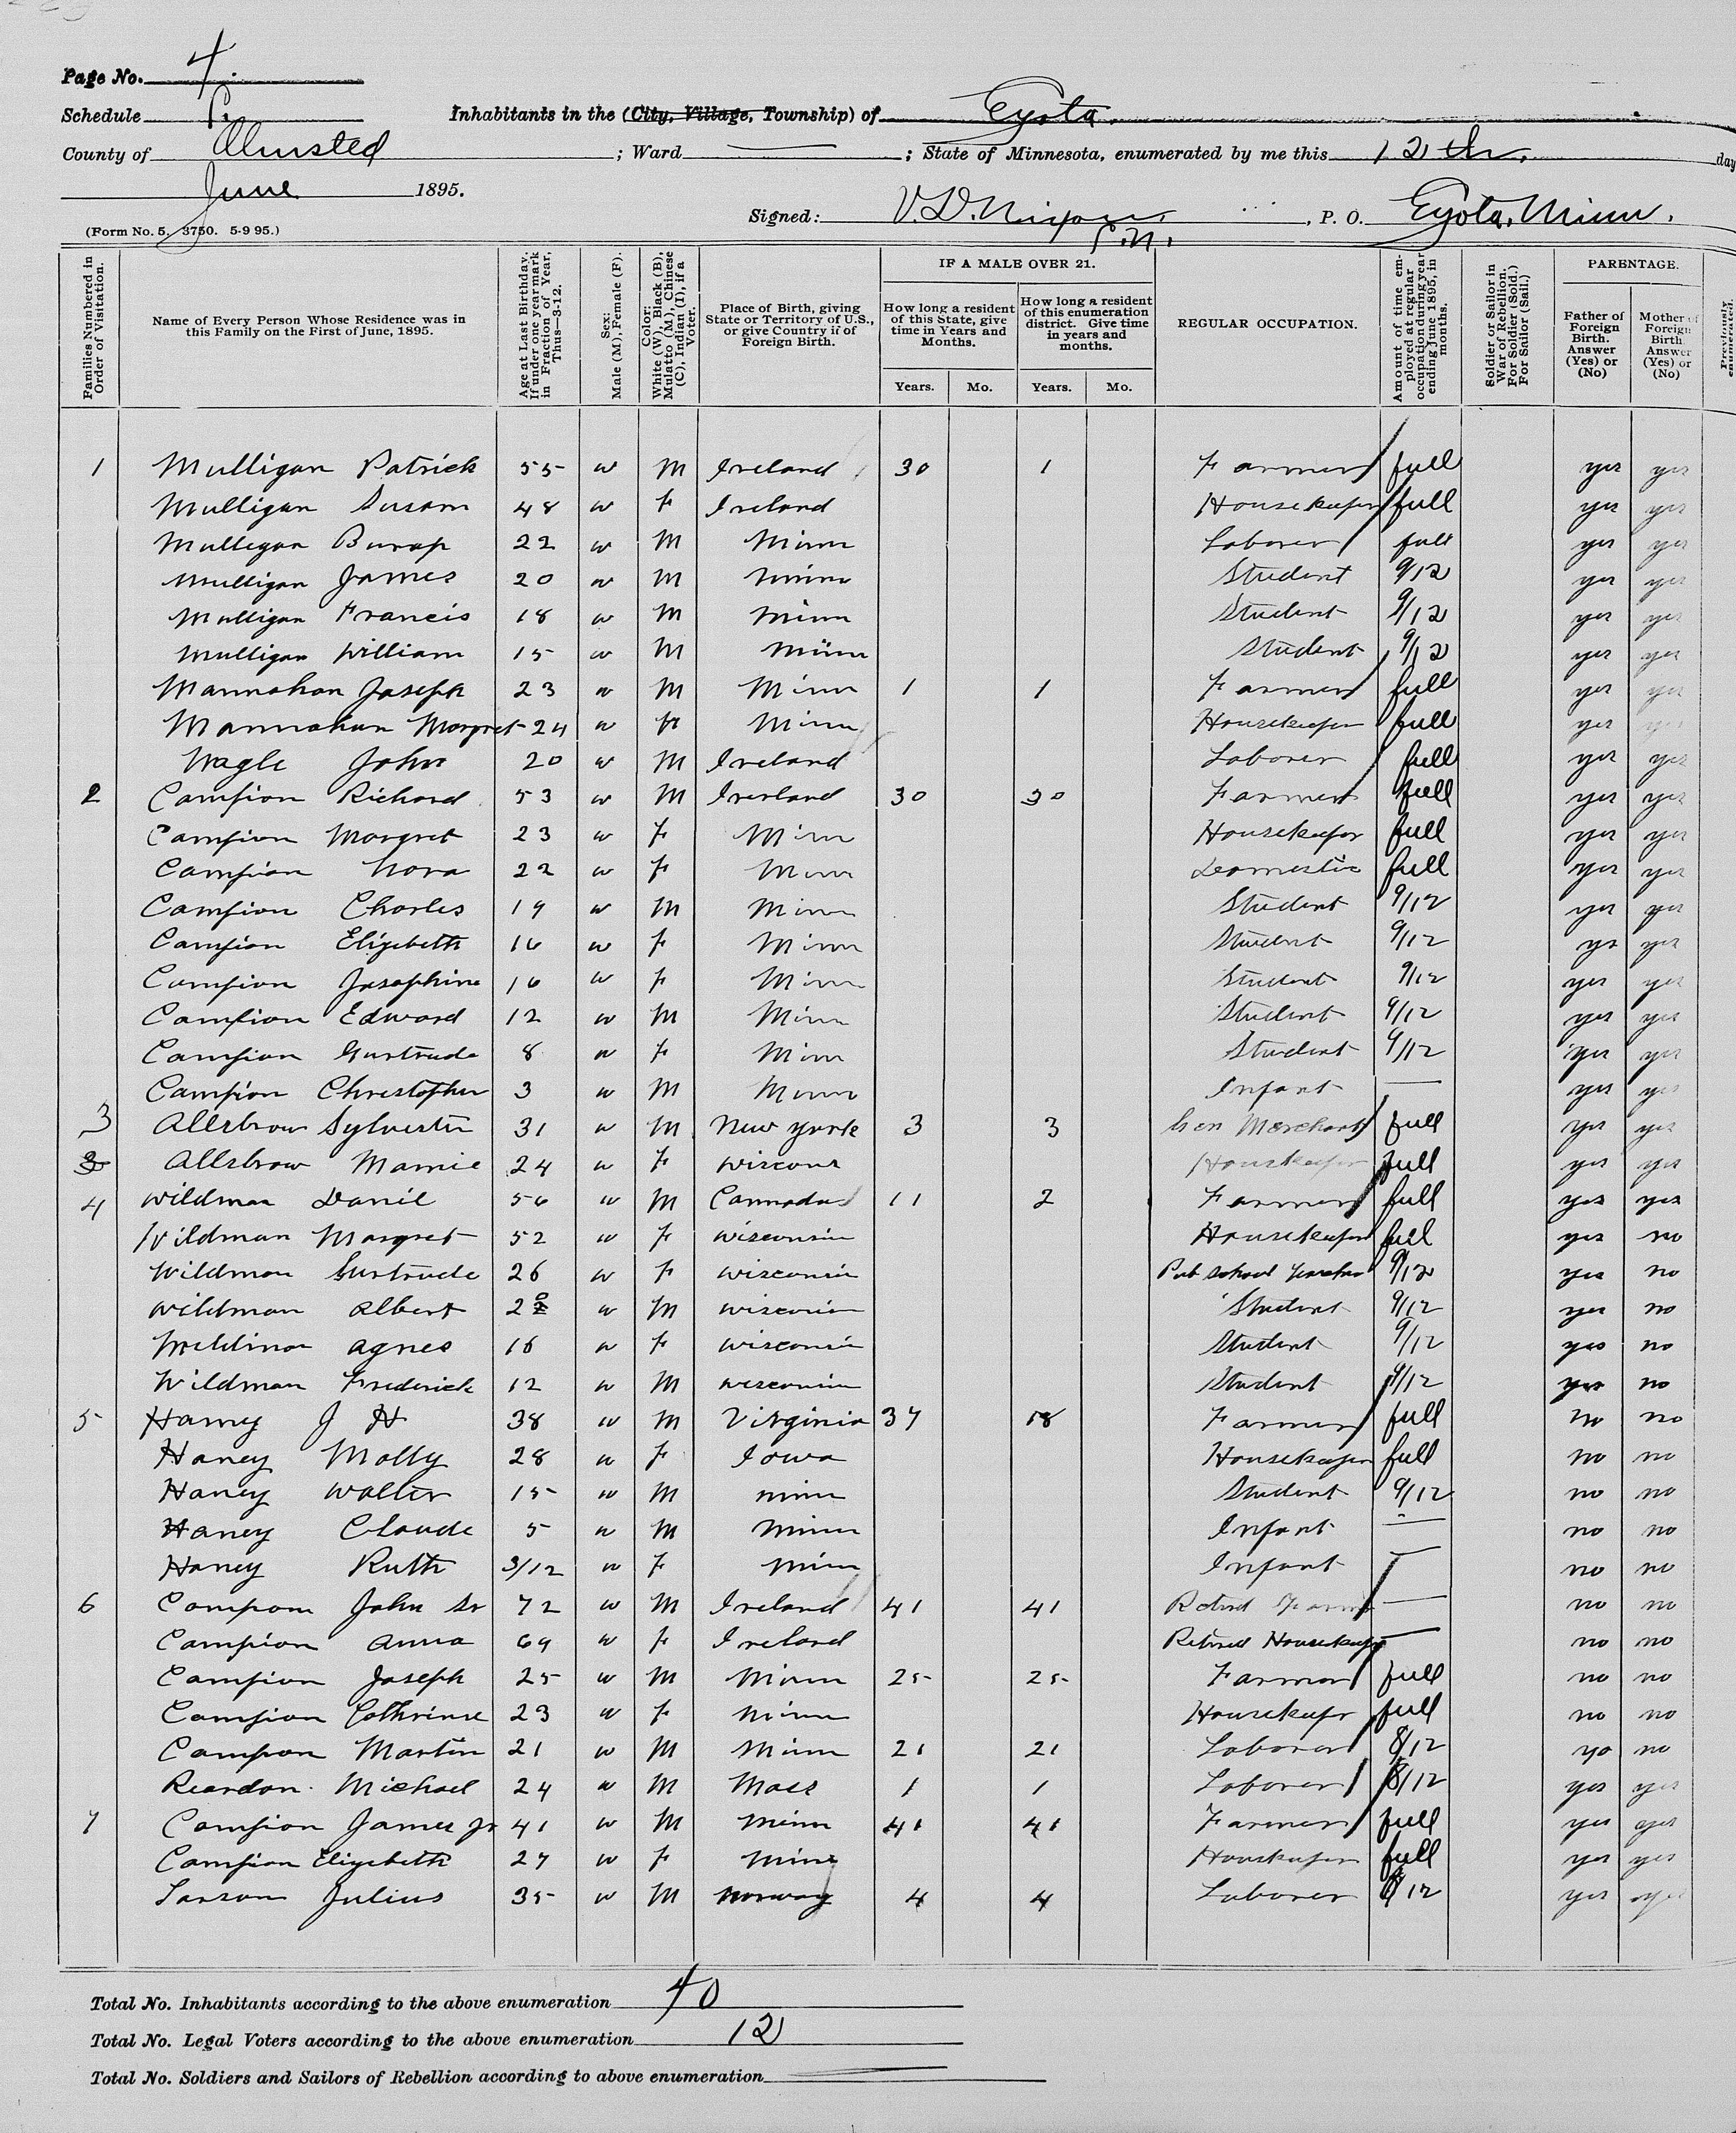 Page No. 4.
Schedule P.
Inhabitants in the (City, Village, Township) of Eyota.
County of Olmsted ; Ward — ; State of Minnesota, enumerated by me this 12th. day
June 1895.
Signed: V. D. Nixon, P. O. Eyota, Minn.
(Form No. 5. 3750. 5-9 95.)
Families Numbered in Order of Visitation.
Name of Every Person Whose Residence was in this Family on the First of June, 1895.
Age at Last Birthday. If under one year mark in Fraction of Year, Thus—3-12.
Sex: Male (M), Female (F).
Color: White (W), Black (B), Mulatto (M), Chinese (C), Indian (I), if a Voter.
Place of Birth, giving State or Territory of U.S., or give Country if of Foreign Birth.
IF A MALE OVER 21.
How long a resident of this State, give time in Years and Months.
How long a resident of this enumeration district. Give time in years and months.
Years. Mo. Years. Mo.
REGULAR OCCUPATION.
Amount of time employed at regular occupation during year ending June 1895, in months.
Soldier or Sailor in War of Rebellion. For Soldier (Sold.) For Sailor (Sail.)
PARENTAGE.
Father of Foreign Birth. Answer (Yes) or (No)
Mother of Foreign Birth Answer (Yes) or (No)
Previously enumerated.
1 Mulligan Patrick 55 w M Ireland 30 1 Farmer full yes yes
Mulligan Susam 48 w F Ireland Housekeeper full yes yes
Mulligan 22 w M Minn Laborer full yes yes
Mulligan James 20 w M Minn Student 9/12 yes yes
Mulligan Francis 18 w M Minn Student 9/12 yes yes
Mulligan William 15 w M Minn Student 9/12 yes yes
Mannahan Joseph 23 w M Minn 1 1 Farmer full yes yes
Mannahan Morgret 24 w F Minn Housekeeper full yes yes
Nagle John 20 w M Ireland Laborer full yes yes
2 Campion Richard 53 w M Irerland 30 30 Farmer full yes yes
Campion Morgret 23 w F Minn Housekeeper full yes yes
Campion Nora 22 w F Minn Deomestic full yes yes
Campion Charles 19 w M Minn Student 9/12 yes yes
Campion Elizebeth 16 w F Minn Student 9/12 ys yes
Campion Josephine 16 w F Minn Student 9/12 yes yes
Campion Edward 12 w M Minn Student 9/12 yes yes
Campion Gurtrude 8 w F Minn Student 9/12 yes yes
Campion Chrestopher 3 w M Minn Infant — yes yes
3 Allsbrow Sylvester 31 w M New york 3 3 Gen Merchant full yes yes
3 Allsbrow Mamie 24 w F Wiscons Housekeeper full yes yes
4 Wildman Danil 56 w M Cannada 11 2 Farmer full yes yes
Wildman Margret 52 w F Wisconsin Housekeeper full yes no
Wildman Gurtrude 26 w F Wisconsin Pub School Teacher 9/12 yes no
Wildman Albert w M Wisconsin Student 9/12 yes no
Agnes 16 w F Wisconsin Student 9/12 yes no
Wildman Frederick 12 w M Wisconsin Student 9/12 yes no
5 Haney J H 38 w M Virginia 37 18 Farmer full no no
Haney Molly 28 w F Iowa Housekeeper full no no
Haney Walter 15 w M Minn Student 9/12 no no
Haney Claude 5 w M Minn Infant — no no
Haney Ruth 3/12 w F Minn Infant — no no
6 Campion John Sr 72 w M Ireland 41 41 Retired Farmer — no no
Campion Anna 69 w F Ireland Retired Housekeeper — no no
Campion Joseph 25 w M Minn 25 25 Farmer full no no
Campion Cathrinne 23 w F Minn Housekeeper full no no
Campion Martin 21 w M Minn 21 21 Laborer 8/12 yo no
Reardon Michael 24 w M Mass 1 1 Laborer 8/12 yes yes
7 Campion James Jr 41 w M Minn 41 41 Farmer full yes yes
Campion Elizebeth 27 w F Minn Housekeeper full yes yes
Larson Julius 35 w M Norway 4 4 Laborer 8/12 yes yes
Total No. Inhabitants according to the above enumeration 40
Total No. Legal Voters according to the above enumeration 12
Total No. Soldiers and Sailors of Rebellion according to above enumeration —